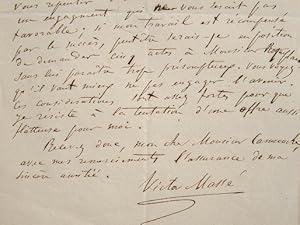 vous repentir
un engagement qui ne vous serait pas
favorable ; si mon travail est récompensé
par le succès, peut-être serais-je en position
de demander cinq actes à Monsieur
sans lui paraître trop présomptueux. Vous voyez
qu'il vaut mieux ne pas engager l'avenir,
les considérations sont assez fortes pour que
je résiste à la tentation d'une offre aussi
flatteuse pour moi.
Recevez donc, mon cher Monsieur
avec mes remerciements l'assurance de ma
sincère amitié.
Victor Massé